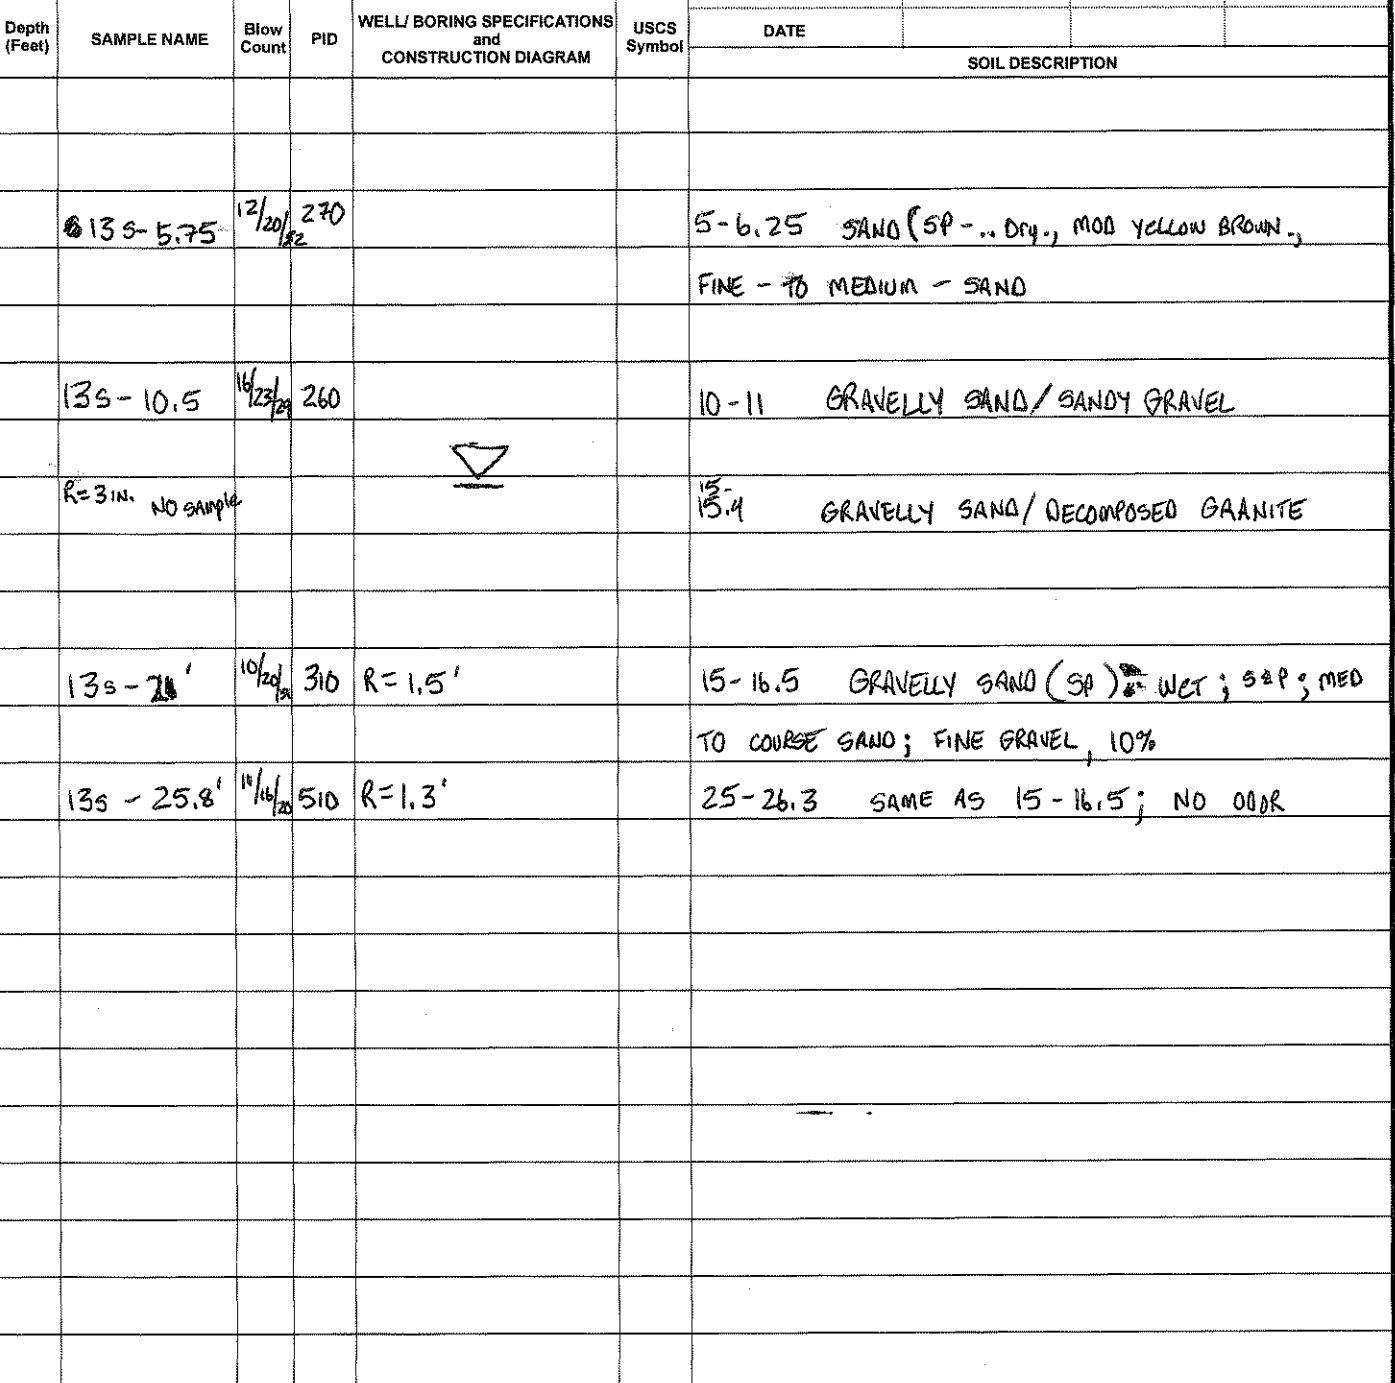 Depth (Feet) SAMPLE NAME Blow Count PID WELL/ BORING SPECIFICATIONS and CONSTRUCTION DIAGRAM USCS Symbol DATE
SOIL DESCRIPTION
13s-5.75 12/20/32 270 5-6.25 SAND (SP-.. Dry., MOD YELLOW BROWN.,
FINE - TO MEDIUM - SAND
13s-10.5 16/23/29 260 10-11 GRAVELLY SAND/SANDY GRAVEL
R=3IN. NO sample 15-15.4 GRAVELLY SAND/DECOMPOSED GRANITE
13s- 10/20/ 310 R=1.5' 15-16.5 GRAVELLY SAND (SP) WET; S&P; MED
TO COURSE SAND; FINE GRAVEL, 10%
13s - 25.8' /16/20 510 R=1.3' 25-26.3 SAME AS 15-16.5; NO ODOR